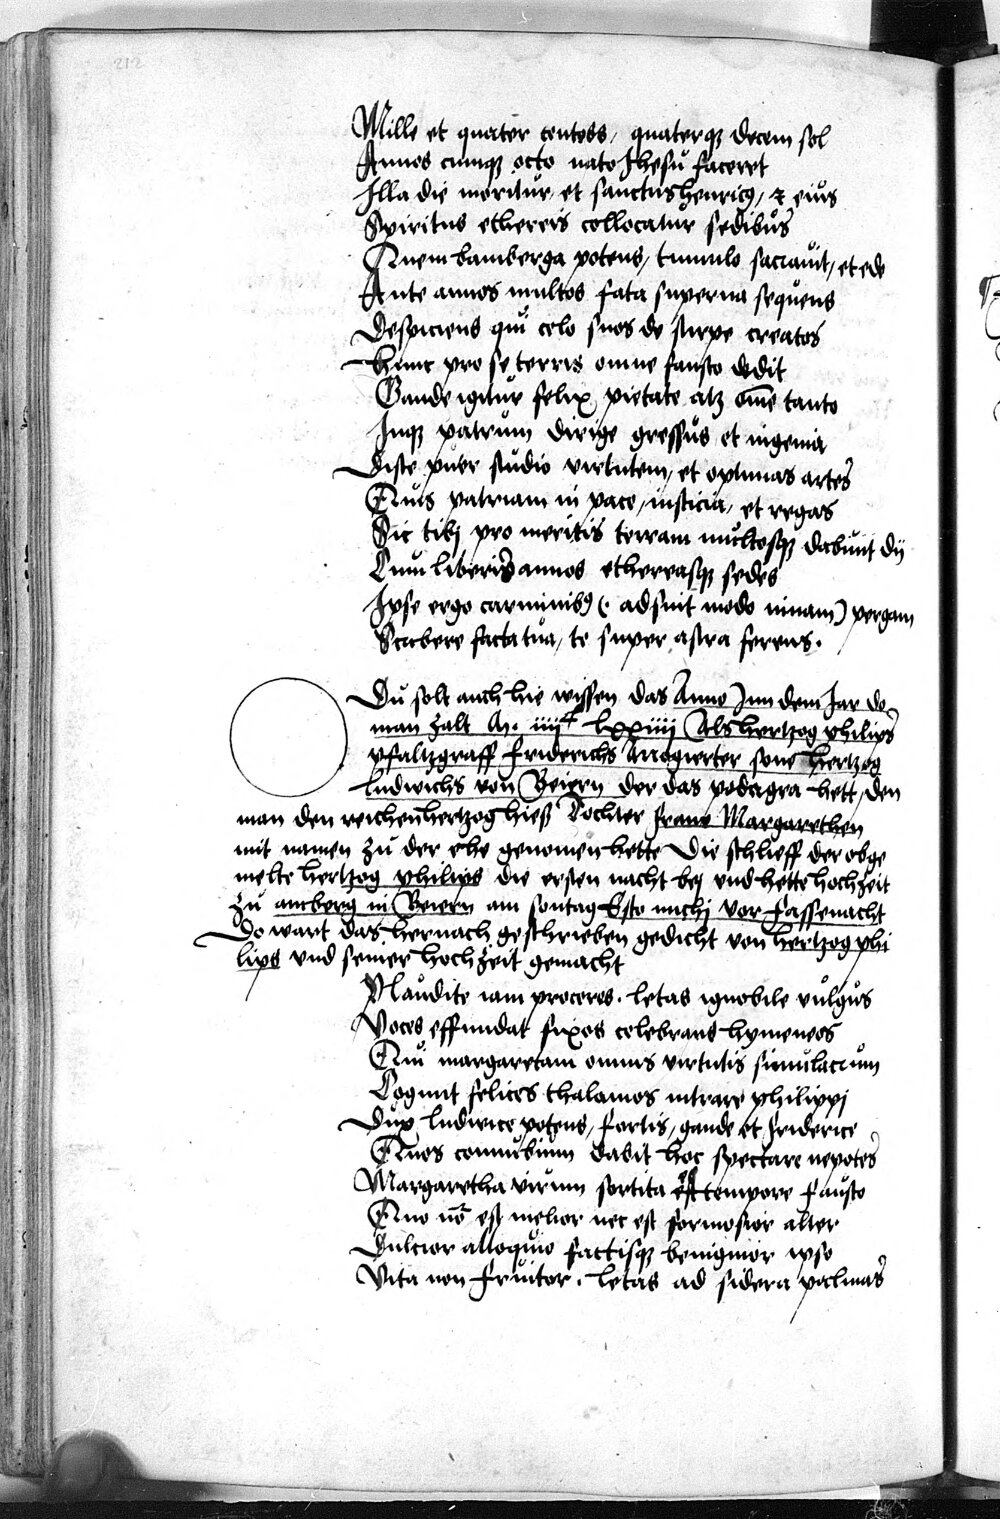 212
Mille et quater centos, quaterqꝫ decem sol
Annos cumqꝫ octo nato Jhesu faceret
Illa die moritur et sanctus henricꝰ, ⁊ eius
Spiritus ethereis collocatur sedibus
Quem bamberga potens, tumulo sacrauit, et ede
Ante annos multos fata superna sequens
Despiciens qui celo suos de stirpe creatos
Hunc pro se terris omine fausto dedit
Gaude igitur felix pietate atqꝫ om̄e tanto
Inqꝫ patrum dirige gressus et ingenia
Disce puer studio virtutem, et optimas artes
Quis patriam in pace, iusticia, et regas
Sic tibj pro meritis terram multosqꝫ dabunt dij
Cum liberis annos ethereasqꝫ sedes
Ipse ergo carminibꝰ (. adsint modo ) pergam
Scribere facta tua, te super astra ferens.
Du solt auch hie wissen das Anno Jnn dem Jar do
man zalt M. iiijᶜ lxxiiij Als hertzog philips
pfaltzgraff friderichs Arrogierter sone hertzog
ludwichs von Beiern der das podagra hett, den
man den reichen hertzog hieß Tochter frauw Margarethen
mit namen zu der ehe genomen hette Die schlieff der obge
melte hertzog philips die ersten nacht bej vnd hette hochzeit
zu amberg in Beiern am sontag Esto michj vor fassenacht
Do wart das hernach geschrieben gedicht von hertzog phi
lips vnd seiner hochzeit gemacht
Plaudite iam proceres. letas ignobile vulgus
Voces effundat fixos celebrans hymeneos
Qui margaretam omnis virtutis simulacrum
Cogunt felices thalamos intrare philippj
Dux ludwice potens, fortis, gaude et friderice
Quos connubium dabit hoc spectare nepotes
Margaretha virum sortita est tempore fausto
Quo nō est melior nec est formosior alter
Dulcior alloquio factisqꝫ benignior ipso
Vita non fruitor. letas ad sidera palmas